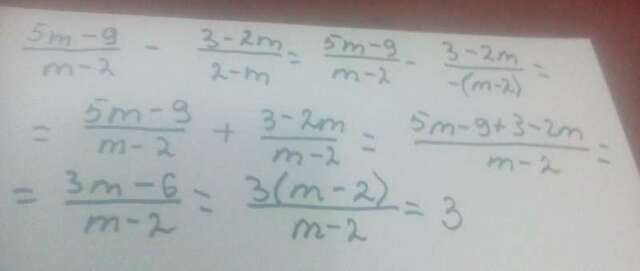 (5m-9)/(m-2) - (3-2m)/(2-m) = (5m-9)/(m-2) - (3-2m)/(-(m-2)) =
= (5m-9)/(m-2) + (3-2m)/(m-2) = (5m-9+3-2m)/(m-2) =
= (3m-6)/(m-2) = (3(m-2))/(m-2) = 3